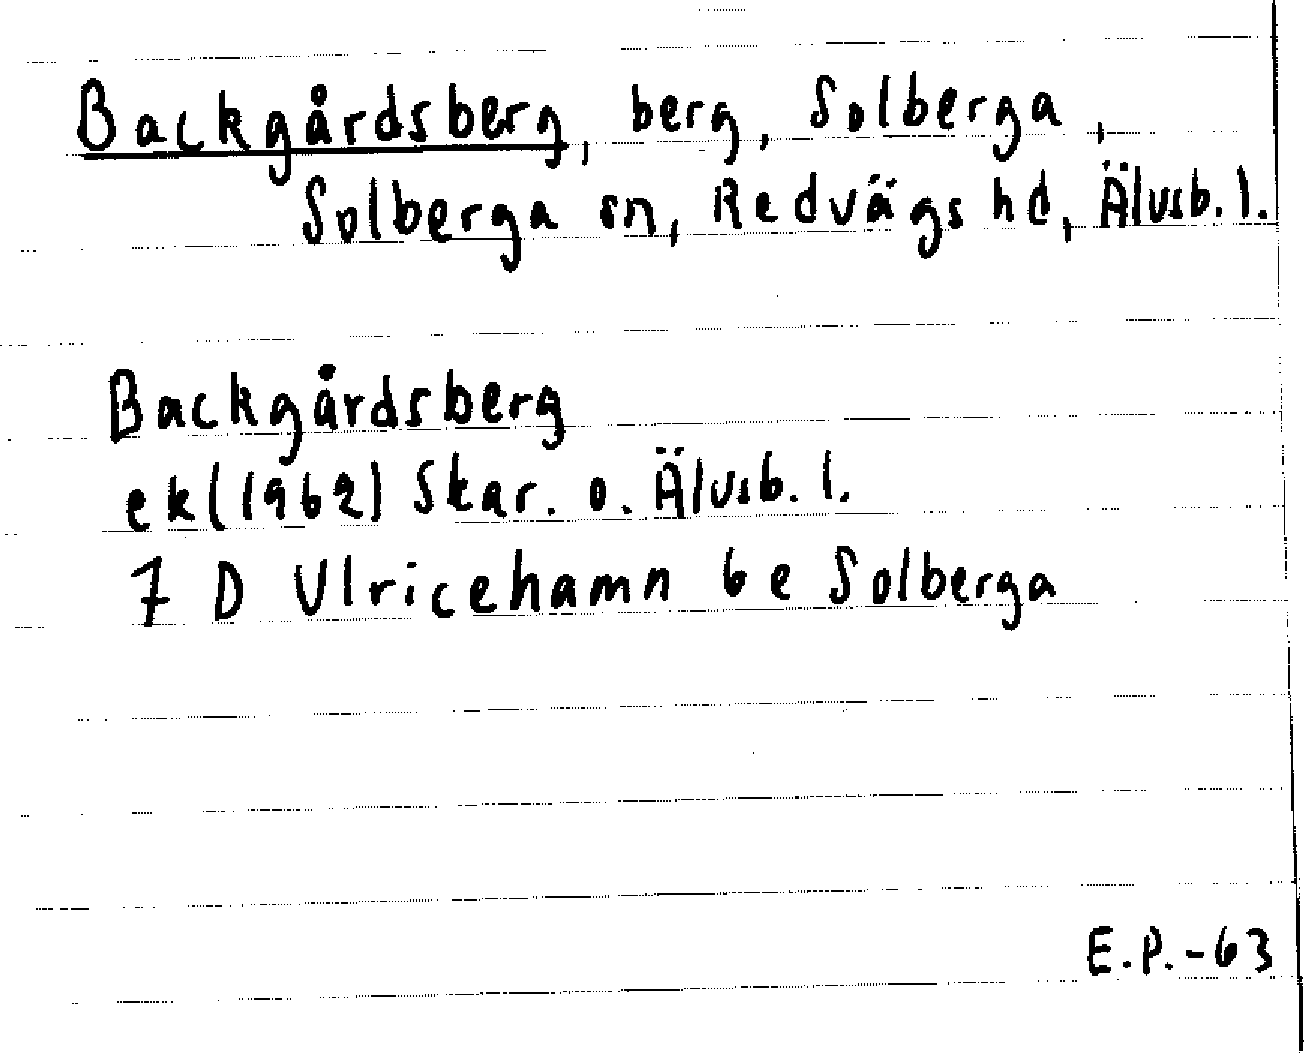 Backgårdsberg, berg, Solberga,
Solberga sn, Redvägs hd, Älvsb. l.
Backgårdsberg
ek (1962) Skar. o. Älvsb. l.
7 D Ulricehamn 6 e Solberga
E.P.-63